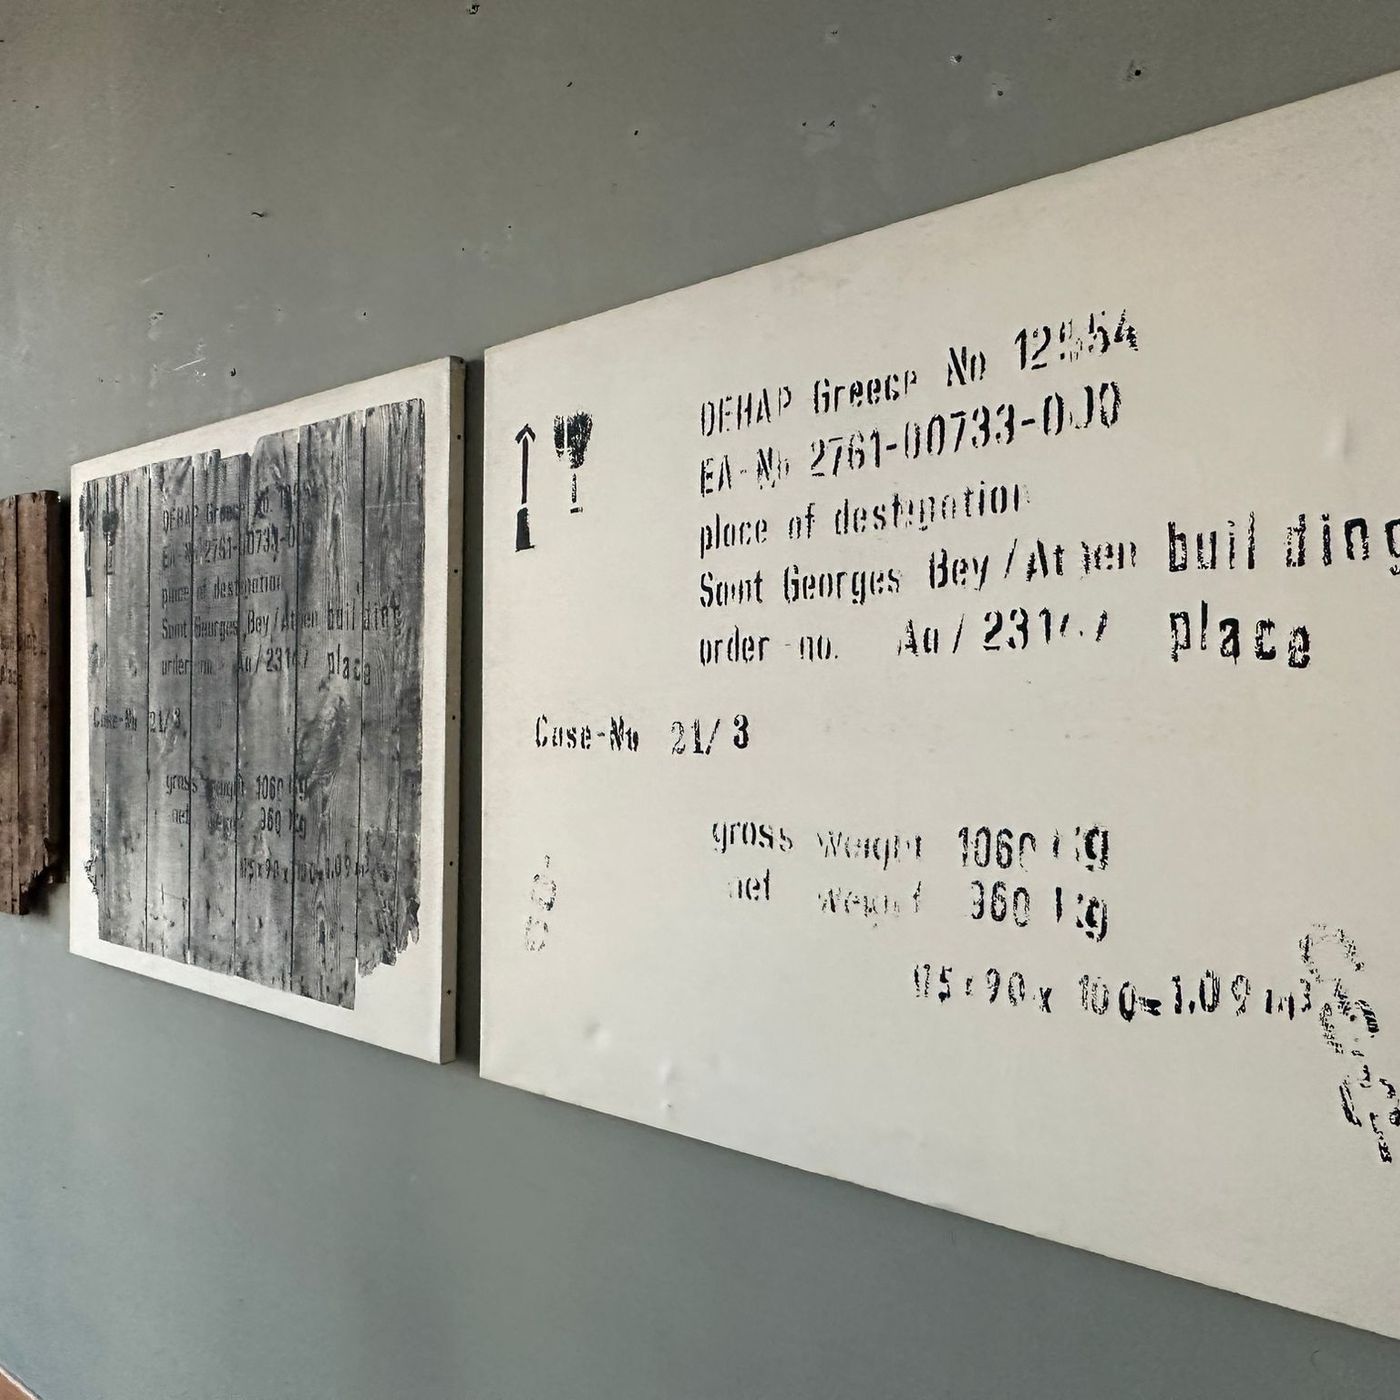 DEHAP Greece No 12554
EA-No 2761-00733-000
place of destination
Saint Georges Bey / Athen building
order-no. Au / 23147 place
Case-No 21/3
gross weight 1060 kg
net weight 960 kg
115 x 90 x 100 = 1.09 m³
DEHAP Greece No
EA-No 2761-00733-0
place of destination
Saint Georges Bey / Athen building
order-no. Au / 23147 place
Case-No 21/3
gross weight 1060 kg
net weight 960 kg
115 x 90 x 100 = 1.09 m³